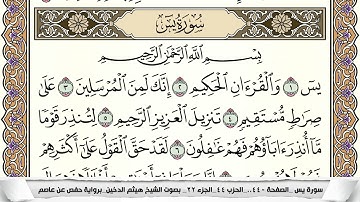 سُورَةُ يسٓ
بِسْمِ ٱللَّهِ ٱلرَّحْمَٰنِ ٱلرَّحِيمِ
يسٓ ١ وَٱلْقُرْءَانِ ٱلْحَكِيمِ ٢ إِنَّكَ لَمِنَ ٱلْمُرْسَلِينَ ٣ عَلَىٰ
صِرَٰطٍ مُّسْتَقِيمٍ ٤ تَنزِيلَ ٱلْعَزِيزِ ٱلرَّحِيمِ ٥ لِتُنذِرَ قَوْمًا
مَّآ أُنذِرَ ءَابَآؤُهُمْ فَهُمْ غَٰفِلُونَ ٦ لَقَدْ حَقَّ ٱلْقَوْلُ عَلَىٰٓ أَكْثَرِهِمْ
سورة يس _الصفحة - ٤٤٠_ الحزب ٤٤_الجزء ٢٢_ بصوت الشيخ هيثم الدخين_برواية حفص عن عاصم